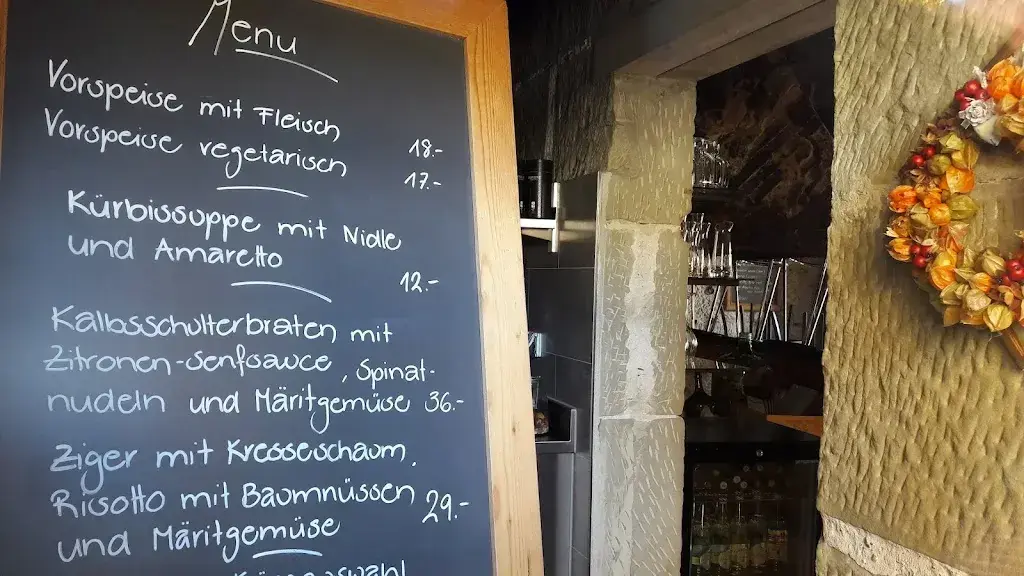 Menu
Vorspeise mit Fleisch 18.-
Vorspeise vegetarisch 17.-
Kürbissuppe mit Nidle
und Amaretto
12.-
Kalbsschulterbraten mit
Zitronen-Senfsauce, Spinat-
nudeln und Märitgemüse 36.-
Ziger mit Kresseschaum,
Risotto mit Baumnüssen 29.-
und Märitgemüse